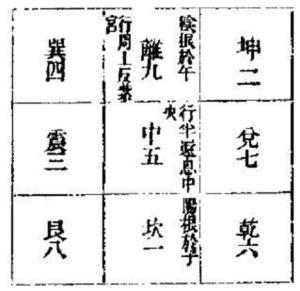 坤二
陰根於午
離九
行周上反紫
宮
巽四
兌七
行半還息中
央
中五
震三
乾六
陽根於子
坎一
艮八